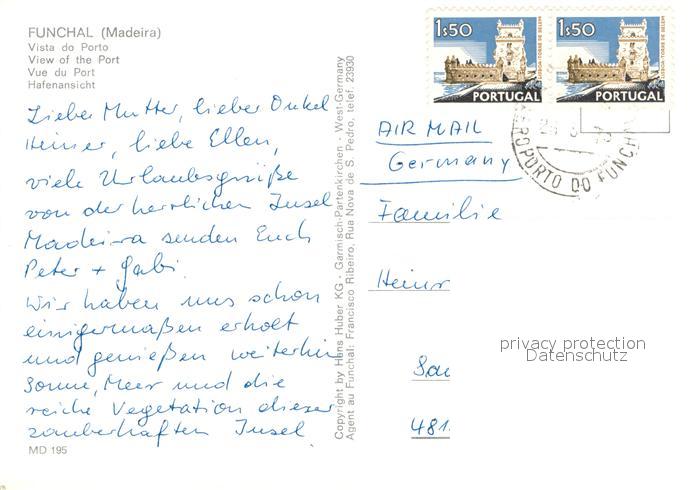 FUNCHAL (Madeira)
Vista do Porto
View of the Port
Vue du Port
Hafenansicht
Lieber Mutter, lieber Onkel
Heiner, liebe Ellen,
viele Urlaubsgrüße
von der herrlichen Insel
Madeira senden Euch
Peter + Gabi.
Wir haben uns schon
einigermaßen erholt
und genießen weiterhin
Sonne, Meer und die
reiche Vegetation dieser
zauberhaften Insel
MD 195
Copyright by Hans Huber KG · Garmisch-Partenkirchen · West-Germany
Agent au Funchal: Francisco Ribeiro, Rua Nova de S. Pedro, telef: 23930
1$50
LISBOA-TORRE DE BELEM
PORTUGAL
1$50
LISBOA-TORRE DE BELEM
PORTUGAL
AEROPORTO DO FUNCHAL
AIR MAIL
Germany
Familie
Heinr
481
privacy protection
Datenschutz